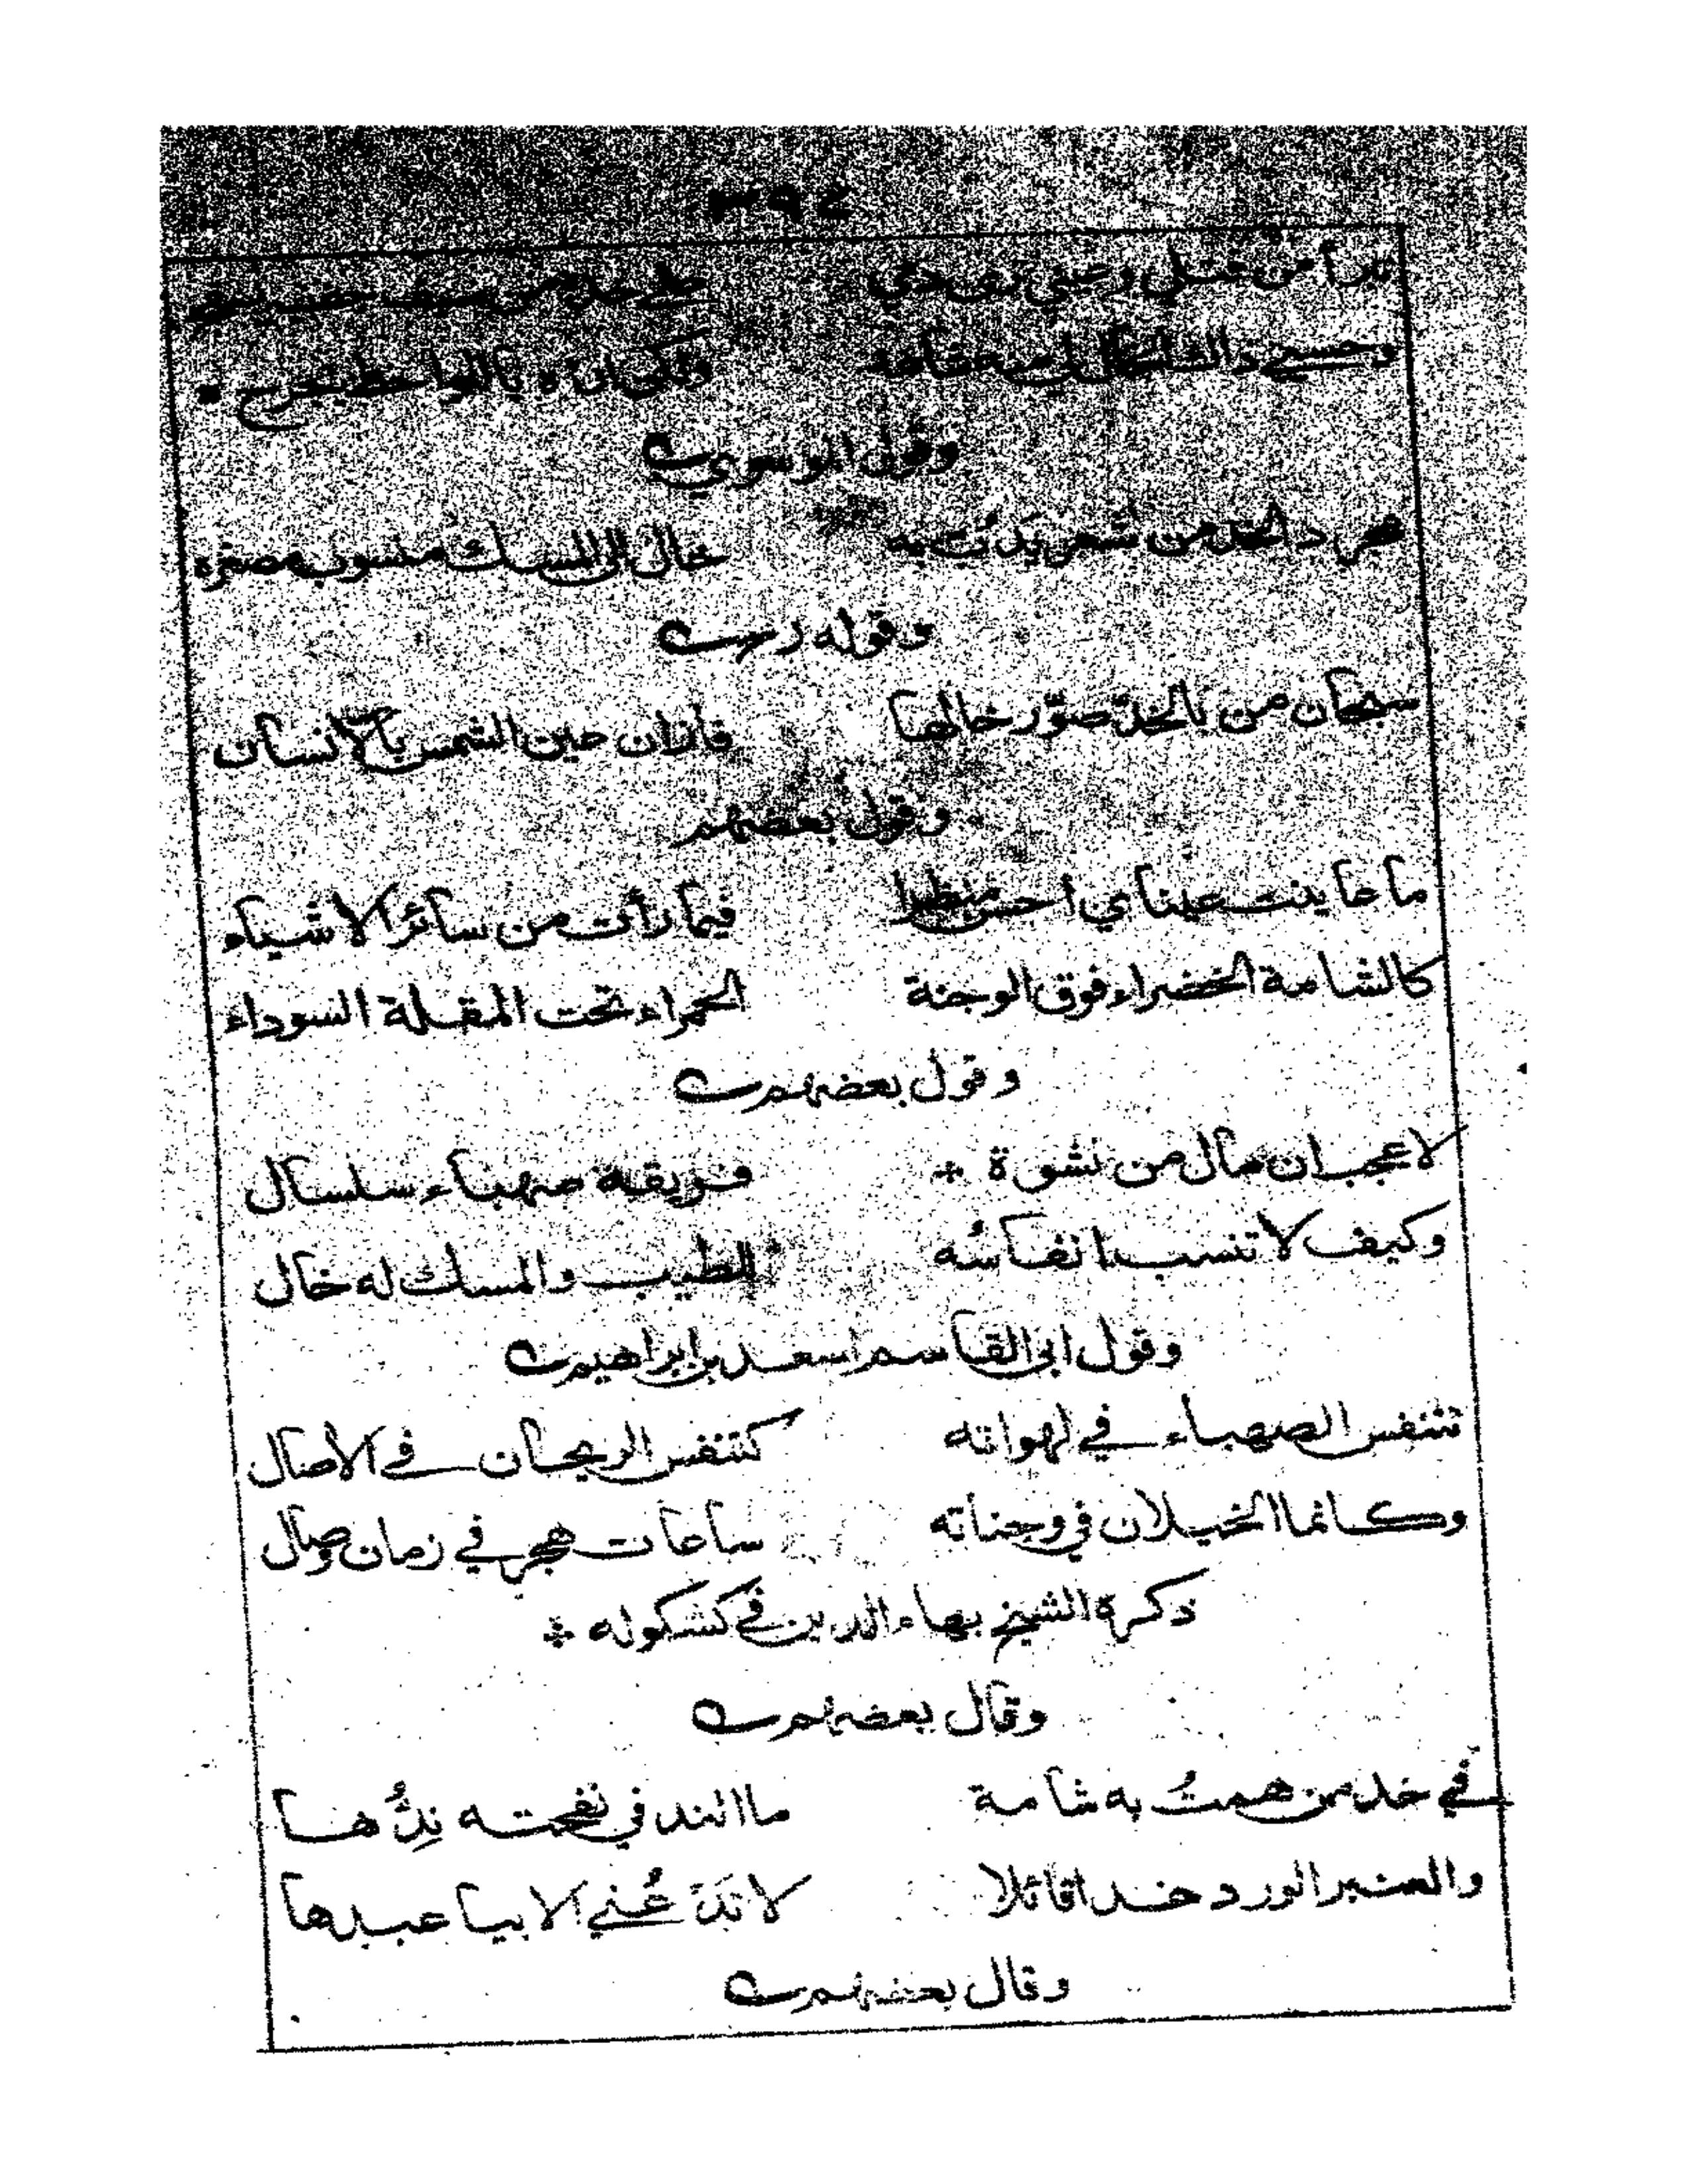 ٣٩٤
تبرأ من قتلي وعيني ترى دمي على خده من سيف
وحسبي ذاك الخال لي منه شاهد ولكن اراه باللواحظ يجرح
وقول الموسوي
خال الى المسك منسوب مصغره
وقوله
سبحان من بالخد صوّر خالها فازان عين الشمس بالانسان
وقول بعضهم
ما عاينت عيناي أحسن منظرا فيما رأت من سائر الاشياء
كالشامة الخضراء فوق الوجنة الحمراء تحت المقلة السوداء
وقول بعضهم
لا عجب ان مال من نشوة فريقه صهباء سلسال
وكيف لا تنسب انفاسُه للطيب والمسك له خال
وقول ابي القاسم اسعد بن ابراهيم
تتنفس الصهباء في لهواته كتنفس الريحان في الأصال
وكانما الخيلان في وجناته ساعات هجر في زمان وصال
ذكره الشيخ بهاء الدين في كشكوله
وقال بعضهم
في خد من همتُ به شامة ما الند في نفحته نِدُّها
والعنبر الورد غدا قائلا لا تدَّعُني الا بيا عبدها
وقال بعضهم